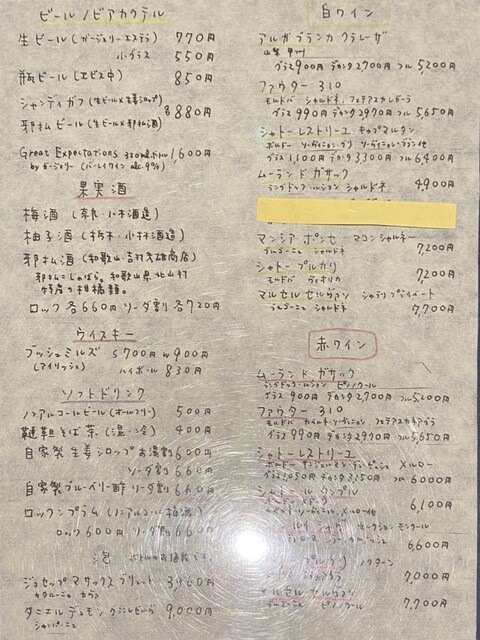 ビール/ビアカクテル
生ビール(ガージェリーエステラ) 770円
小グラス 550円
瓶ビール(エビス中) 850円
シャンディガフ(生ビール×生姜シロップ)
邪払ビール(生ビール×邪払酒)
各880円
Great Expectations 320mlボトル 1,600円
by ガージェリー(バーレイワイン alc.9%)
果実酒
梅酒(奈良・八木酒造)
柚子酒(栃木・小林酒造)
邪払酒(和歌山・吉村秀雄商店)
邪払=じゃばら。和歌山県北山村
特産の柑橘類。
ロック各660円 ソーダ割各720円
ウイスキー
ブッシュミルズ S700円 W900円
(アイリッシュ) ハイボール830円
ソフトドリンク
ノンアルコールビール(オールフリー) 500円
韃靼そば茶(温・冷) 400円
自家製生姜シロップ お湯割600円
ソーダ割660円
自家製ブルーベリー酢 ソーダ割660円
ロックンプラム(ノンアルコール梅酒)
ロック600円 ソーダ割660円
泡 ボトルのお値段です。
ジョセップマサックスブリュット
カタルーニャ カヴァ
ダニエルデュモン 9,000円
シャンパーニュ
白ワイン
アルガブランカ クラレーザ
山梨 甲州
グラス900円 デカンタ2700円 フル5,200円
ファウター 310
モルドバ シャルドネ、フェテアスカレガーラ
グラス990円 デカンタ2970円 フル5,650円
シャトーレストリーユ キャプマルタン
ボルドー ソーヴィニヨンブラン ソーヴィニヨングリ他
グラス1,100円 デカンタ3,300円 フル6,400円
ムーランドガサック
ラングドックルーション シャルドネ 4,900円
マンシアポンセ マコンシャルネー
ブルゴーニュ シャルドネ 7,200円
シャトープルカリ
モルドバ ヴィオリカ 7,200円
マルセルセルヴァン シャブリプライベート
ブルゴーニュ シャルドネ 7,700円
赤ワイン
ムーランドガサック
ラングドックルーション ピノノワール
グラス900円 デカンタ2700円 フル5,200円
ファウター 310
モルドバ カベルネソーヴィニヨン、フェテアスカネアグラ
グラス990円 デカンタ2970円 フル5,650円
シャトーレストリーユ
ボルドー メルロー
グラス1,050円 デカンタ3,150円 フル6,000円
6,100円
6,600円
プルカリ
7,000円
マルセルセルヴァン
ブルゴーニュ ピノノワール 7,700円